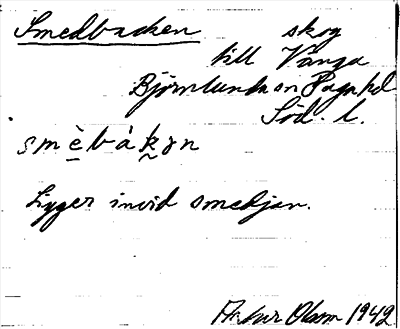 Smedbacken skog
till Vånga
Björnlunda sn Daga hd
Söd. l.
smèbákən
Ligger invid smedjan.
Artur Olsson 1942